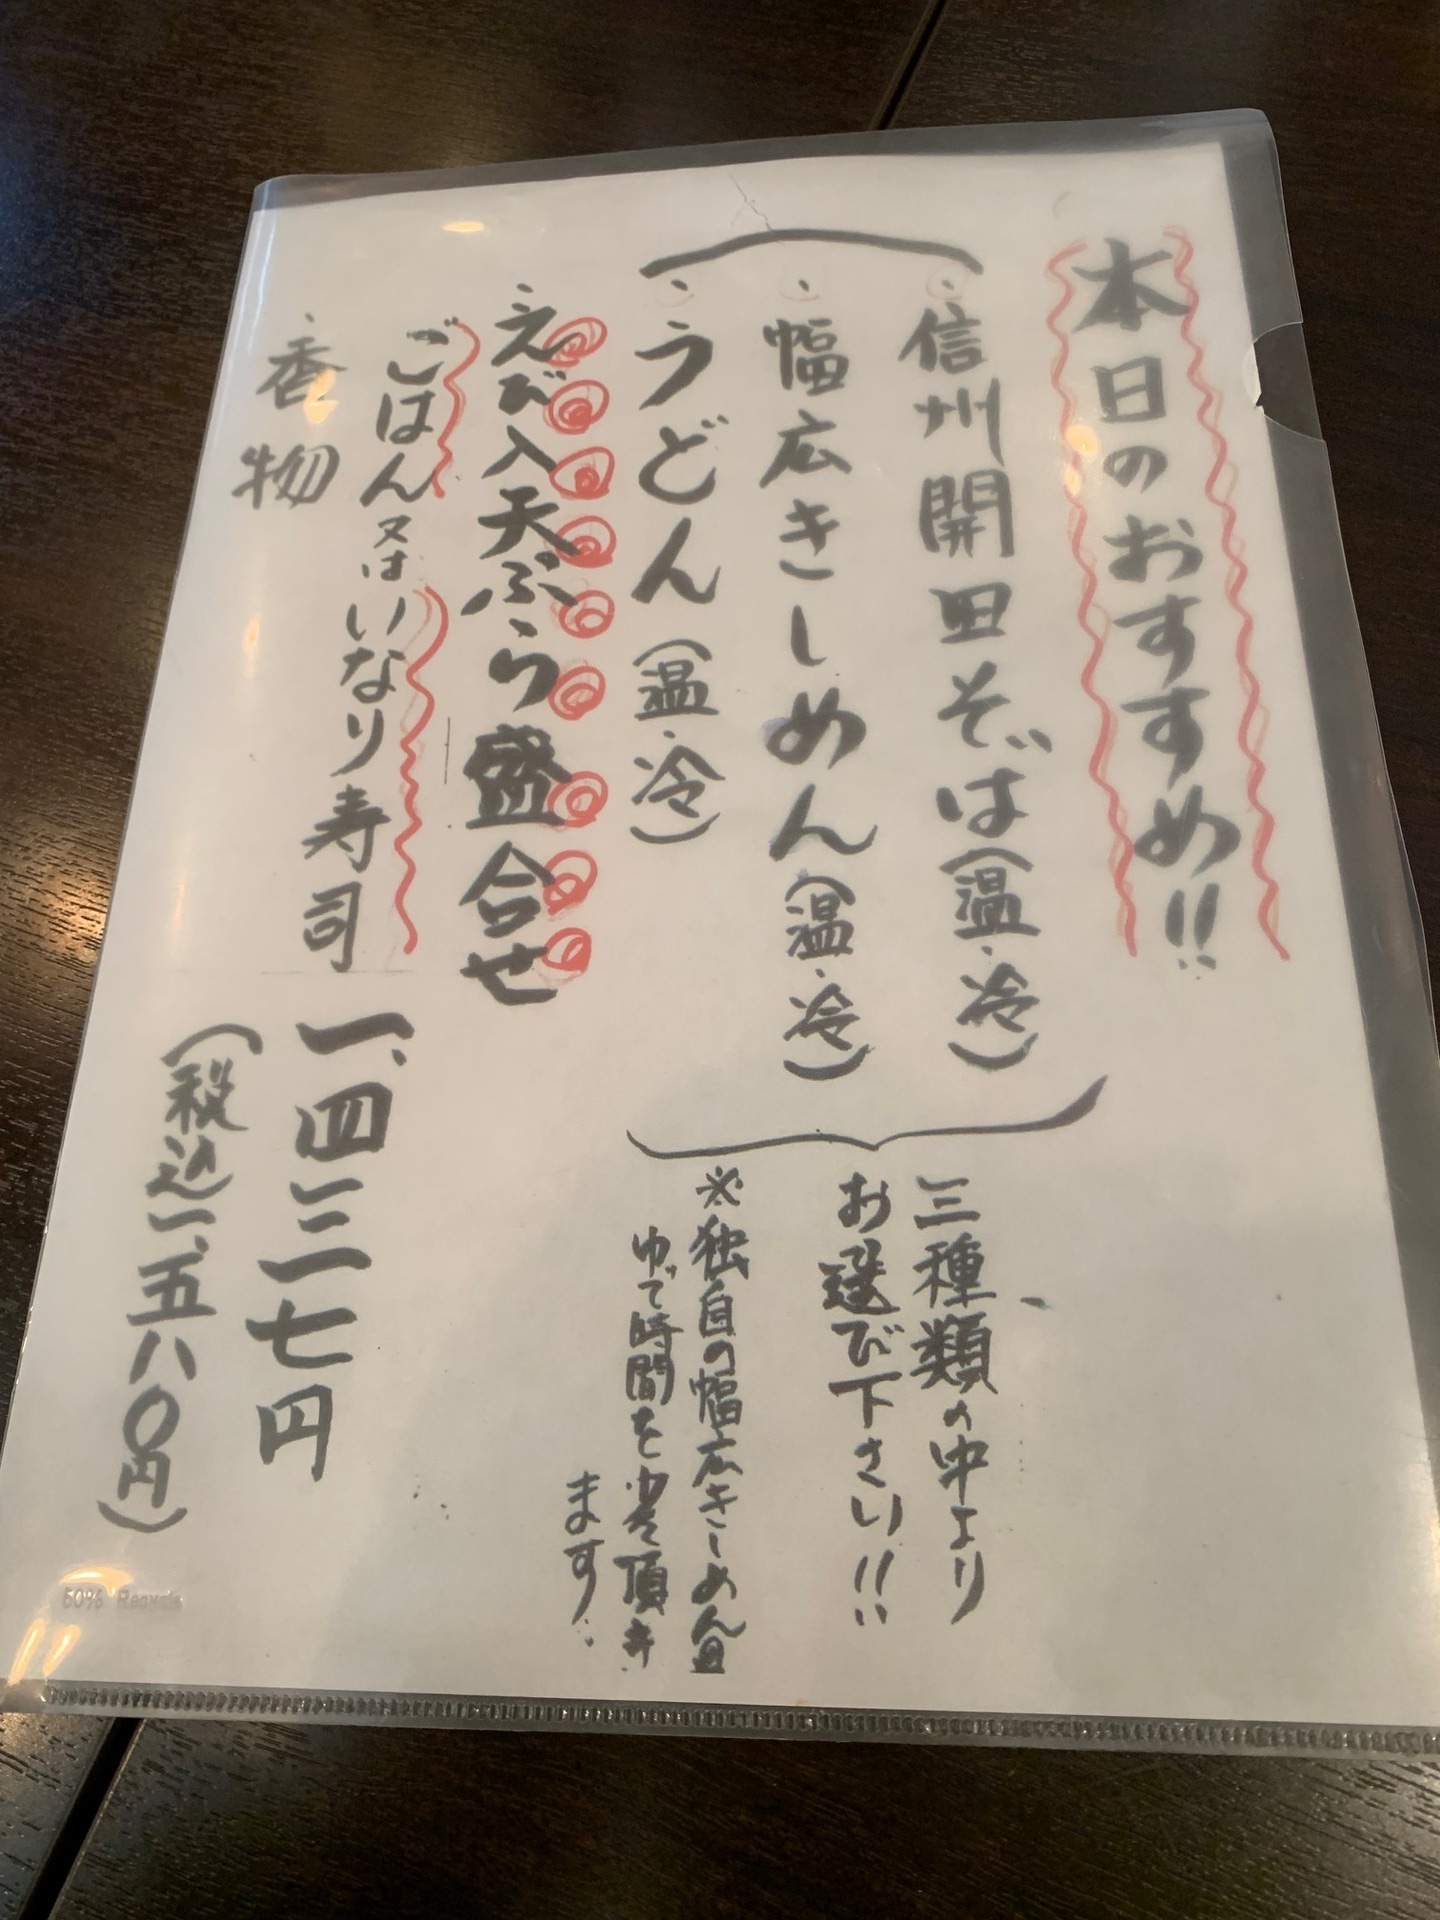 本日のおすすめ!!
・信州開田そば(温・冷)
・幅広きしめん(温・冷)
・うどん(温・冷)
三種類の中より
お選び下さい!!
※独自の幅広きしめん
ゆで時間を少々頂き
ます
・えび入天ぷら盛合せ
・ごはん又はいなり寿司
・香物
一、四三七円
(税込一、五八〇円)
50% Recycle